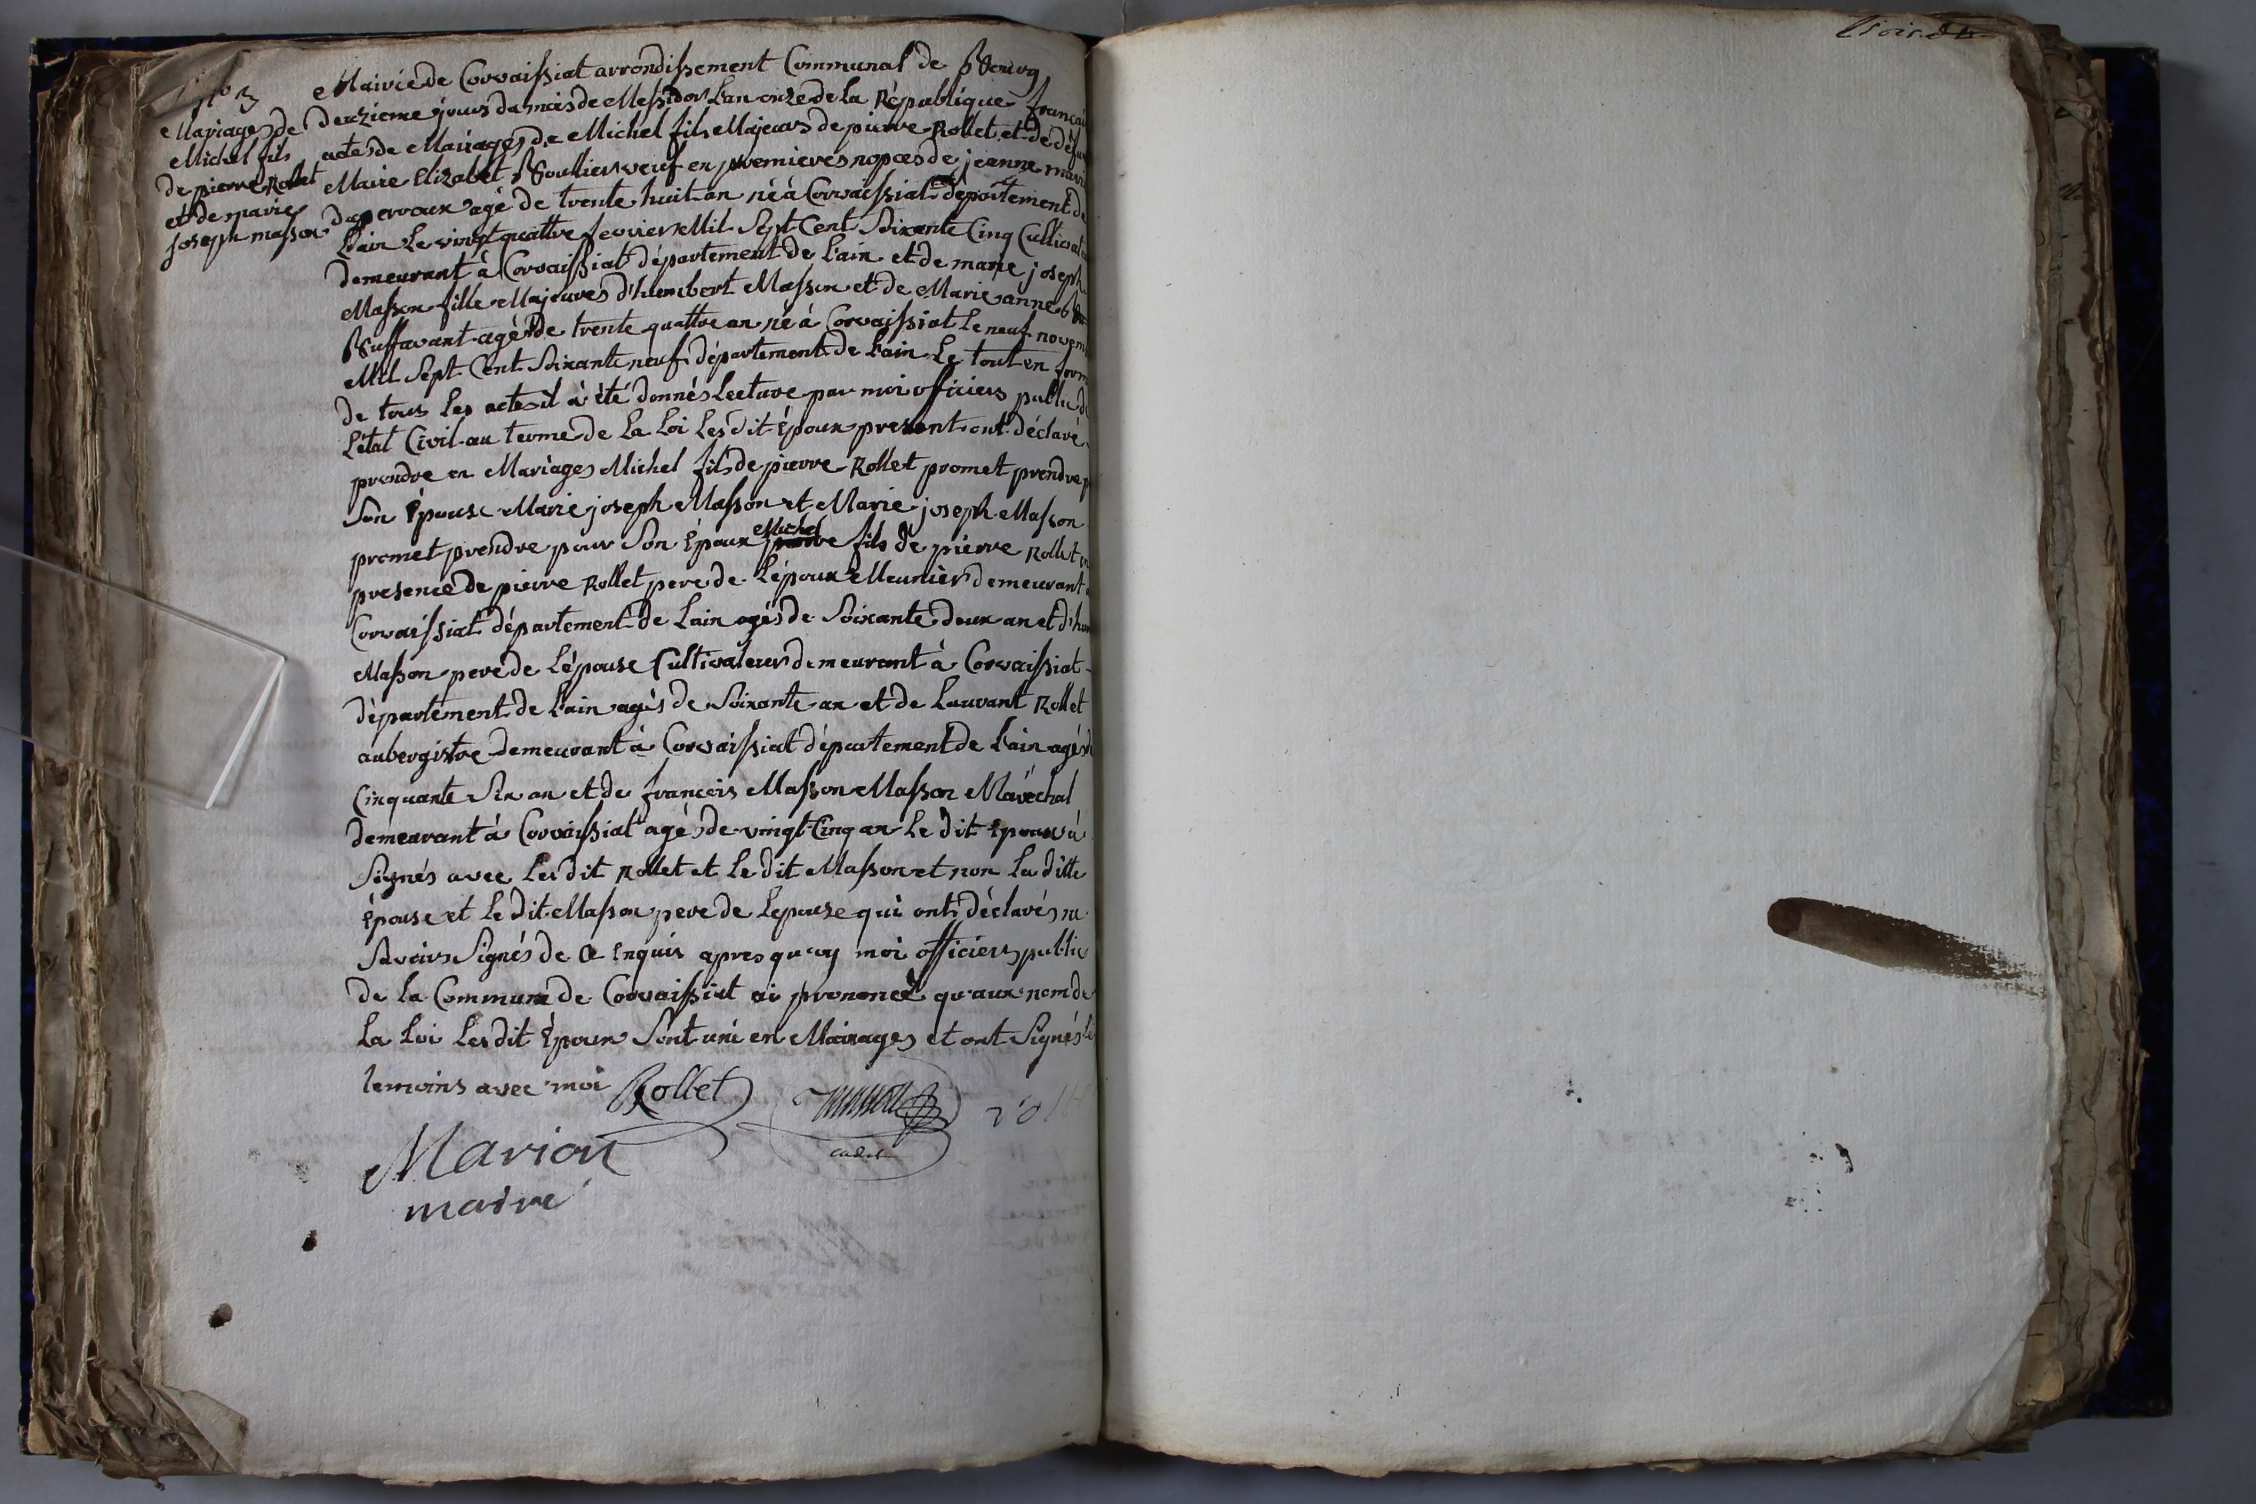 N.o 3
Mariages de
Michel fils
de pierre Rollet
et de marie
joseph masson
Mairie de Corvaissiat arrondissement Communal de Bourg
deuzieme jours du mois de Messidor Lan onze de la République françai
actes de Mariages de Michel fils Majeurs de pierre Rollet et de défu
Marie Elizabet Boulliers veuf en premieres nopces de jeanne mari
Duperoux agé de trente huit an né à Corvaissiat département de
Lain Le vingt quattre fevriers Mil Sept Cent Soixante Cinq Cultivat
demeurant à Corvaissiat département de Lain et de marie joseph
Masson fille Majeures d'humbert Masson et de Marie anne
Buffavant agés de trente quattre an né à Corvaissiat Le neuf novem
Mil Sept Cent Soixante neuf département de Lain Le tout en form
de tous Les actes il à été donnés Lecture par moi officiers public d
L'état Civil au terme de La Loi Les dit Époux present ont déclaré
prendre en Mariages Michel fils de pierre Rollet promet prendre p
Son Épouse Marie joseph Masson et Marie joseph Masson
promet prendre pour Son Époux Michel fils de pierre Rollet en
presence de pierre Rollet pere de Lépoux Meuniers demeurant à
Corvaissiat département de Lain agés de Soixante deux an et d'hum
Masson pere de Lépouse Cultivateurs demeurant à Corvaissiat
département de Lain agés de Soixante an et de Laurant Rollet
aubergistre demeurant à Corvaissiat département de Lain agés d
Cinquante Six an et de francois Masson Masson Maréchal
demeurant à Corvaissiat agés de vingt Cinq an Le dit Époux à
Signés avec Les dit Rollet et Le dit Masson et non La ditte
Épouse et Le dit Masson pere de Lepouse qui ont déclarés ne
Savoirs Signés de Ce Enquis apres quoy moi officiers public
de La Commune de Corvaissiat ai prononcé qu'aux nom de
La Loi Les dit Époux Sont uni en Mairages et ont Signés Le
temoins avec moi Rollet masson
cadet
Marion
maire